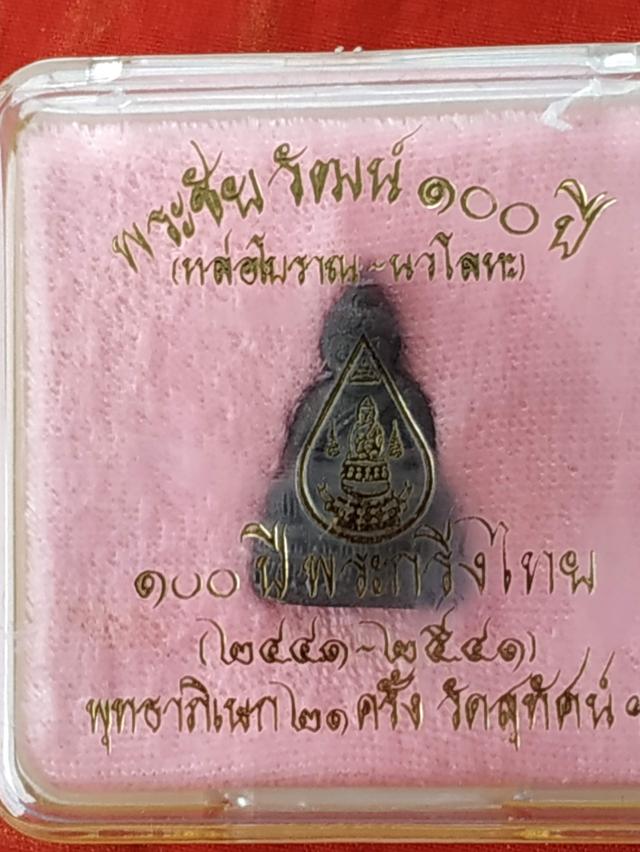 พระชัยวัฒน์ ๑๐๐ ปี
(หล่อโบราณ-นวโลหะ)
๑๐๐ ปี พระกริ่งไทย
(๒๔๔๑-๒๕๔๑)
พุทธาภิเษก ๒๑ ครั้ง วัดสุทัศน์